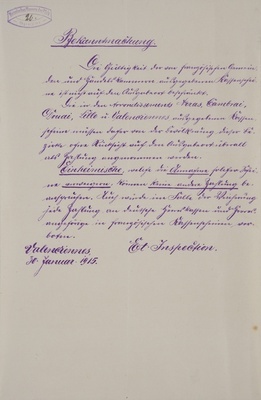 26.
Bekanntmachung.
Die Gültigkeit der von französischen Gemein-
den und Handelskammern ausgegebenen Kassenscheine
ist nicht auf den Ausgabeort beschränkt.
Die in den Arrondissements Arras, Cambrai,
Douai, Lille u Valenciennes ausgegebenen Kassen-
scheine müssen daher von der Bevölkerung dieser Be-
zirke ohne Rücksicht auf den Ausgabeort überall
als Zahlung angenommen werden.
Einheimische, welche die Annahme solcher Schei-
ne verweigern, können keine andere Zahlung be-
anspruchen. Auch wird im Falle der Weigerung
jede Zahlung an
in französischen Kassenscheinen ver-
boten.
Valenciennes,
30. Januar 1915.
Et. Inspection.